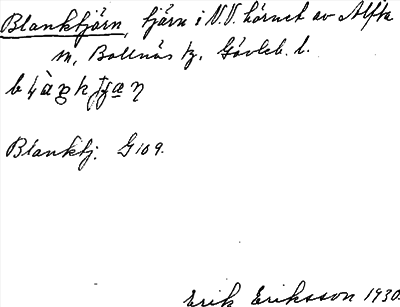 Blanktjärn, tjärn i N.V. hörnet av Alfta
sn, Bollnäs tg. Gävleb. l.
Blanktj. G 109.
Erik Eriksson 1930.